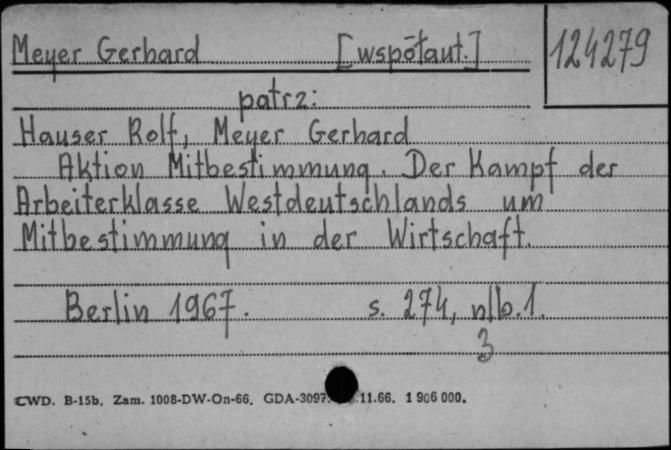 Meyer Gerhard [współaut.] 124279
patrz:
Hauser Rolf, Meyer Gerhard
Aktion Mitbestimmung. Der Kampf der
Arbeiterklasse Westdeutschlands um
Mitbestimmung in der Wirtschaft.
Berlin 1967. s. 274, nlb. 1.
3
CWD. B-15b. Zam. 1008-DW-On-66. GDA-3097. 11.66. 1 906 000.